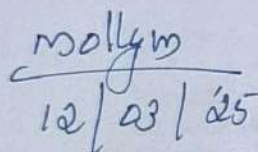 mollym
12/03/'25